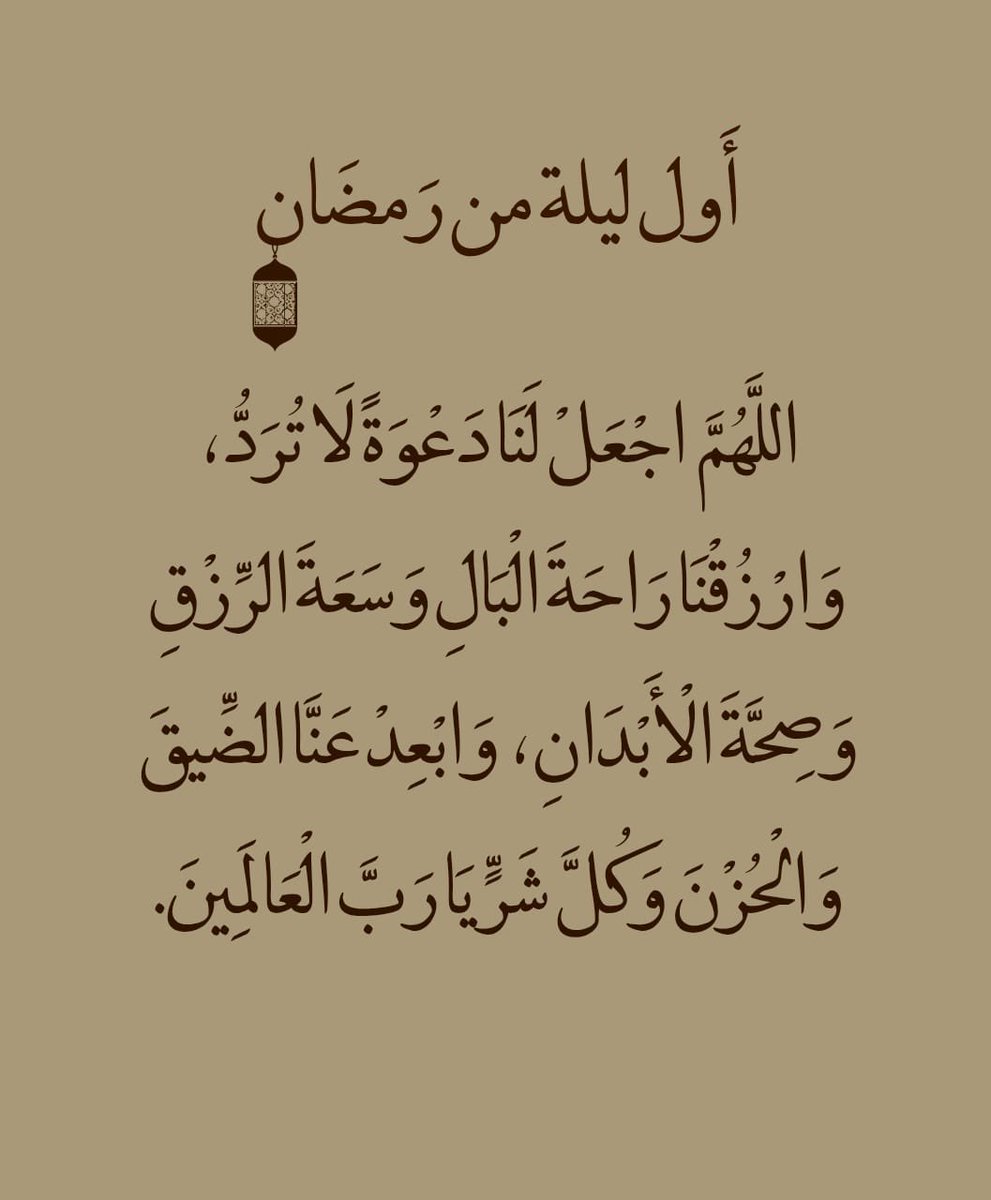 أَول ليلة من رَمضَان
اللَّهُمَّ اجْعَلْ لَنَا دَعْوَةً لَا تُرَدُّ،
وَارْزُقْنَا رَاحَةَ الْبَالِ وَسَعَةَ الرِّزْقِ
وَصِحَّةَ الْأَبْدَانِ، وَابْعِدْ عَنَّا الضِّيقَ
وَالْحُزْنَ وَكُلَّ شَرٍّ يَا رَبَّ الْعَالَمِينَ.